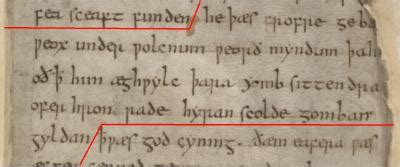 fea sceaft funden he þæs frofre geba
ƿeox under ƿolcnum ƿeorð myndum þah
oð ꝥ him æghƿylc þara ymb sittendra
ofer hron rade hyran scolde gomban
gyldan ꝥ ƿæs god cyning. ðæm eafera ƿæs